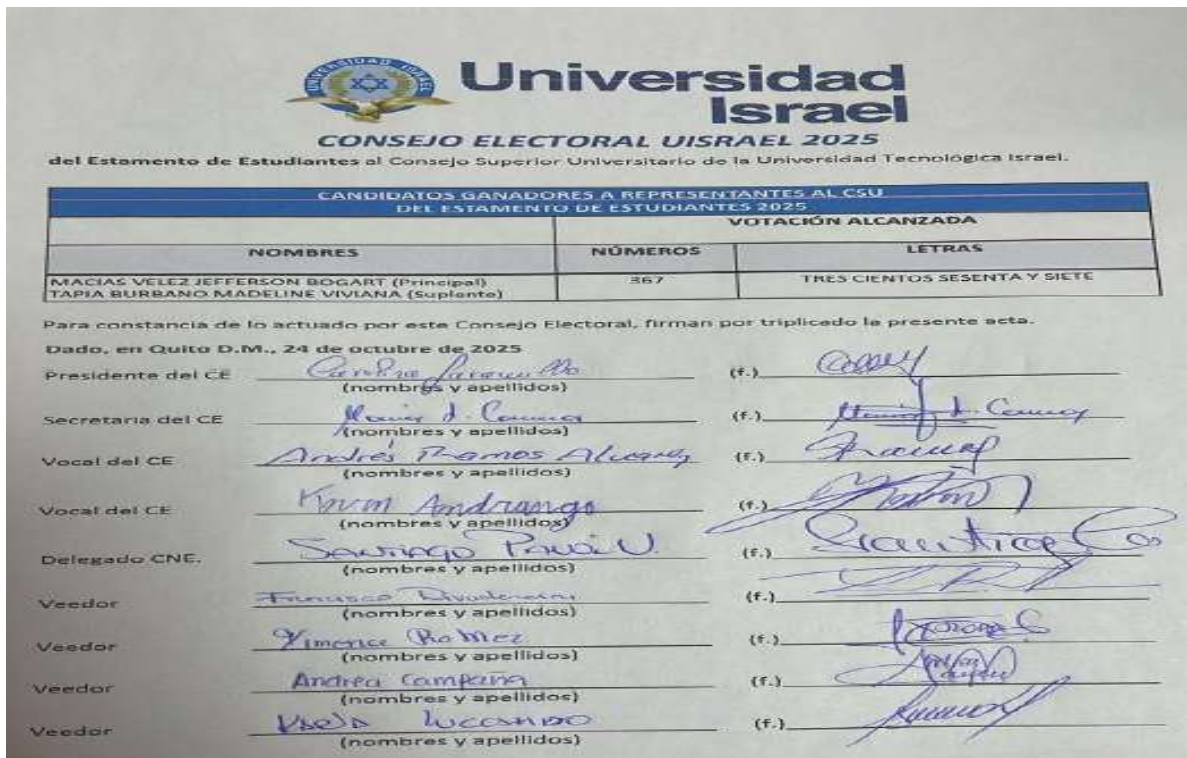 UNIVERSIDAD ISRAEL
Universidad
Israel
CONSEJO ELECTORAL UISRAEL 2025
del Estamento de Estudiantes al Consejo Superior Universitario de la Universidad Tecnológica Israel.
CANDIDATOS GANADORES A REPRESENTANTES AL CSU
DEL ESTAMENTO DE ESTUDIANTES 2025
VOTACIÓN ALCANZADA
NOMBRES NÚMEROS LETRAS
MACIAS VELEZ JEFFERSON BOGART (Principal) 367 TRES CIENTOS SESENTA Y SIETE
TAPIA BURBANO MADELINE VIVIANA (Suplente)
Para constancia de lo actuado por este Consejo Electoral, firman por triplicado la presente acta.
Dado, en Quito D.M., 24 de octubre de 2025
Presidente del CE Carolina Jaramillo (f.)
(nombres y apellidos)
Secretaria del CE (f.)
(nombres y apellidos)
Vocal del CE Andrés Ramos Alvarez (f.)
(nombres y apellidos)
Vocal del CE Kevin Andrango (f.)
(nombres y apellidos)
Delegado CNE. Santiago (f.)
(nombres y apellidos)
Veedor Francisco Rivadeneira (f.)
(nombres y apellidos)
Veedor Ximena (f.)
(nombres y apellidos)
Veedor Andrea Campaña (f.)
(nombres y apellidos)
Veedor (f.)
(nombres y apellidos)